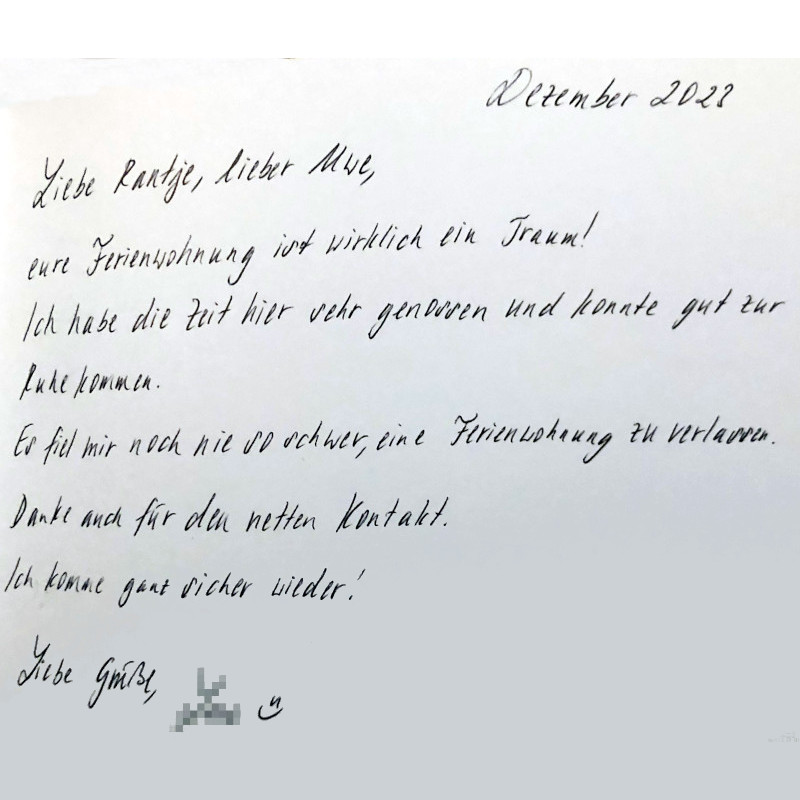 Dezember 2023
Liebe Rantje, lieber Uwe,
eure Ferienwohnung ist wirklich ein Traum!
Ich habe die Zeit hier sehr genossen und konnte gut zur
Ruhe kommen.
Es fiel mir noch nie so schwer, eine Ferienwohnung zu verlassen.
Danke auch für den netten Kontakt.
Ich komme ganz sicher wieder!
Liebe Grüße,